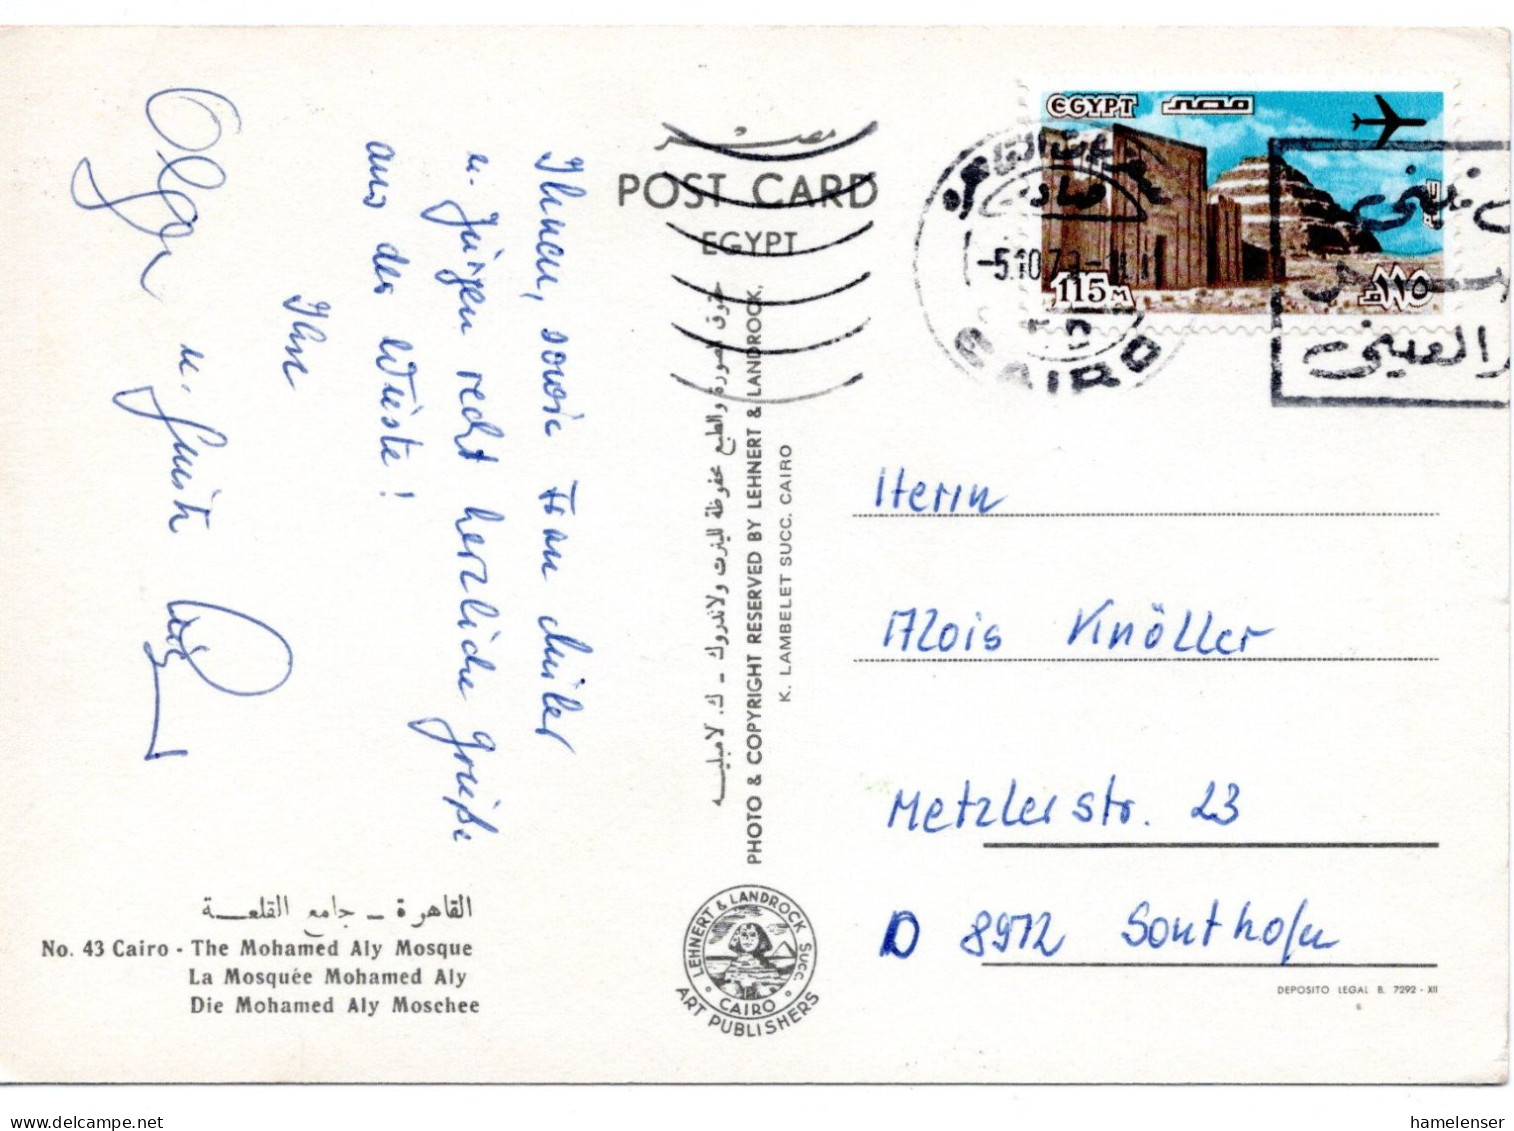 Ihnen, sowie Frau
u. Jürgen recht herzliche Grüße
aus der Wüste!
Ihre
Olga u.
القاهرة - جامع القلعة
No. 43 Cairo - The Mohamed Aly Mosque
La Mosquée Mohamed Aly
Die Mohamed Aly Moschee
مصر
POST CARD
EGYPT
حقوق الصورة والطبع محفوظة للينرت ولاندروك - ك. لامبليه
PHOTO & COPYRIGHT RESERVED BY LEHNERT & LANDROCK,
K. LAMBELET SUCC. CAIRO
LEHNERT & LANDROCK SUCC.
CAIRO
ART PUBLISHERS
EGYPT مصر
115M ١١٥
CAIRO
Herrn
Alois Knöller
Metzlerstr. 23
D 8972 Sonthofen
DEPOSITO LEGAL B. 7292 - XII
hamelenser